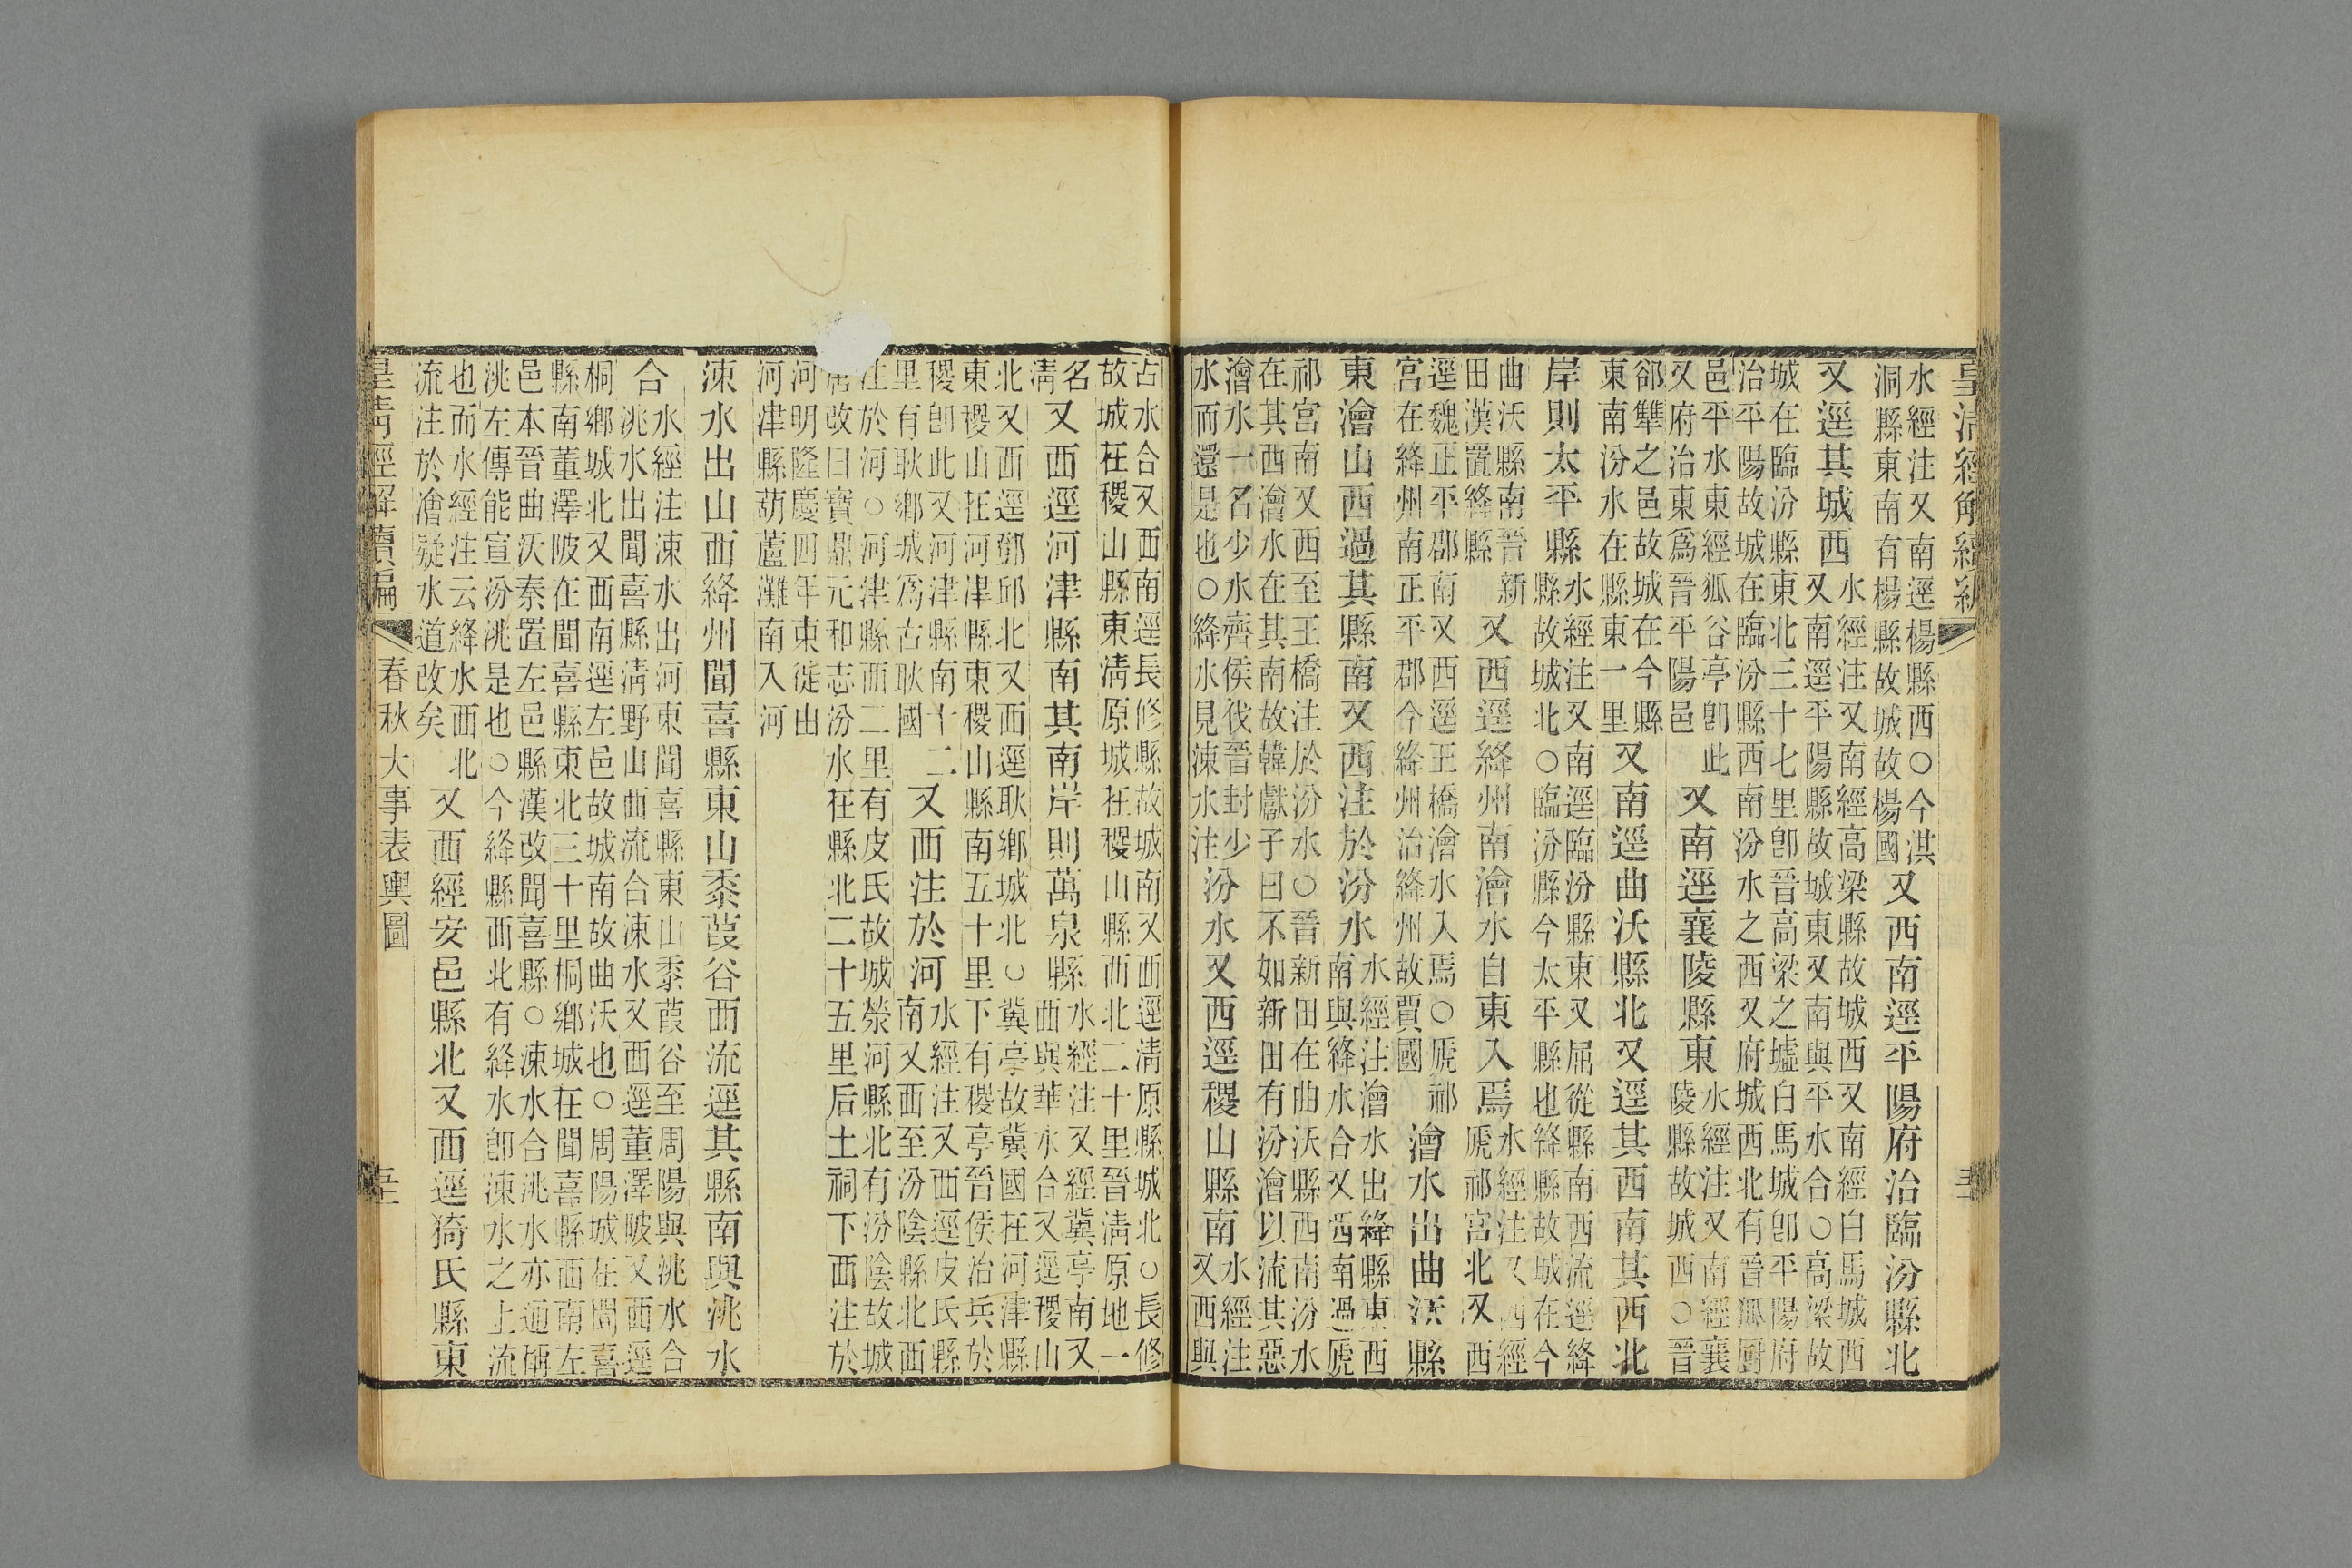 皇清經解續編
水經注又南逕楊縣西○今淇
洞縣東南有楊縣故城故楊國
又西南逕平陽府治臨汾縣北
又逕其城西
水經注又南經高梁縣故城西又南經白馬城西
又南逕平陽縣故城東又南與平水合○高梁故
城在臨汾縣東北三十七里卽晉高梁之墟白馬城卽平陽府
治平陽故城在臨汾縣西南汾水之西又府城西北有晉狐厨
邑平水東經狐谷亭卽此
又府治東爲晉平陽邑
又南逕襄陵縣東
水經注又南經襄
陵縣故城西○晉
郤犨之邑故城在今縣
東南汾水在縣東一里
又南逕曲沃縣北又逕其西南其西北
岸則太平縣
水經注又南逕臨汾縣東又屈從縣南西流逕絳
縣故城北○臨汾縣今太平縣也絳縣故城在今
曲沃縣南晉新
田漢置絳縣
又西逕絳州南澮水自東入焉
水經注又西經
虒祁宮北又西
逕魏正平郡南又西逕王橋澮水入焉○虒祁
宮在絳州南正平郡今絳州治絳州故賈國
澮水出曲沃縣
東澮山西過其縣南又西注於汾水
水經注澮水出絳縣東西
南與絳水合又西南過虒
祁宮南又西至王橋注於汾水○晉新田在曲沃縣西南汾水
在其西澮水在其南故韓獻子曰不如新田有汾澮以流其惡
澮水一名少水齊侯伐晉封少
水而還是也○絳水見涑水注
汾水又西逕稷山縣南
水經注
又西與
古水合又西南逕長修縣故城南又西逕清原縣城北○長修
故城在稷山縣東清原城在稷山縣西北二十里晉清原地一
名
清
又西逕河津縣南其南岸則萬泉縣
水經注又經冀亭南又
西與華水合又逕稷山
北又西逕鄧邱北又西逕耿鄉城北○冀亭故冀國在河津縣
東稷山在河津縣東稷山縣南五十里下有稷亭晉侯治兵於
稷卽此又河津縣南十二
里有耿鄉城爲古耿國
又西注於河
水經注又西逕皮氏縣
南又西至汾陰縣北西
注於河○河津縣西二里有皮氏故城滎河縣北有汾陰故城
改曰寶鼎元和志汾水在縣北二十五里后土祠下西注於
河明隆慶四年東徙由
河津縣葫蘆灘南入河
涑水出山西絳州聞喜縣東山黍葭谷西流逕其縣南與洮水
合
水經注涑水出河東聞喜縣東山黍葭谷至周陽與洮水合
洮水出聞喜縣清野山西流合涑水又西逕董澤陂又西逕
桐鄉城北又西南逕左邑故城南故曲沃也○周陽城在聞喜
縣南董澤陂在聞喜縣東北三十里桐鄉城在聞喜縣西南左
邑本晉曲沃秦置左邑縣漢改聞喜縣○涑水合洮水亦通稱
洮左傳能宣汾洮是也○今絳縣西北有絳水卽涑水之上流
也而水經注云絳水西北
流注於澮疑水道改矣
又西經安邑縣北又西逕猗氏縣東
皇清經解續編
春秋大事表輿圖